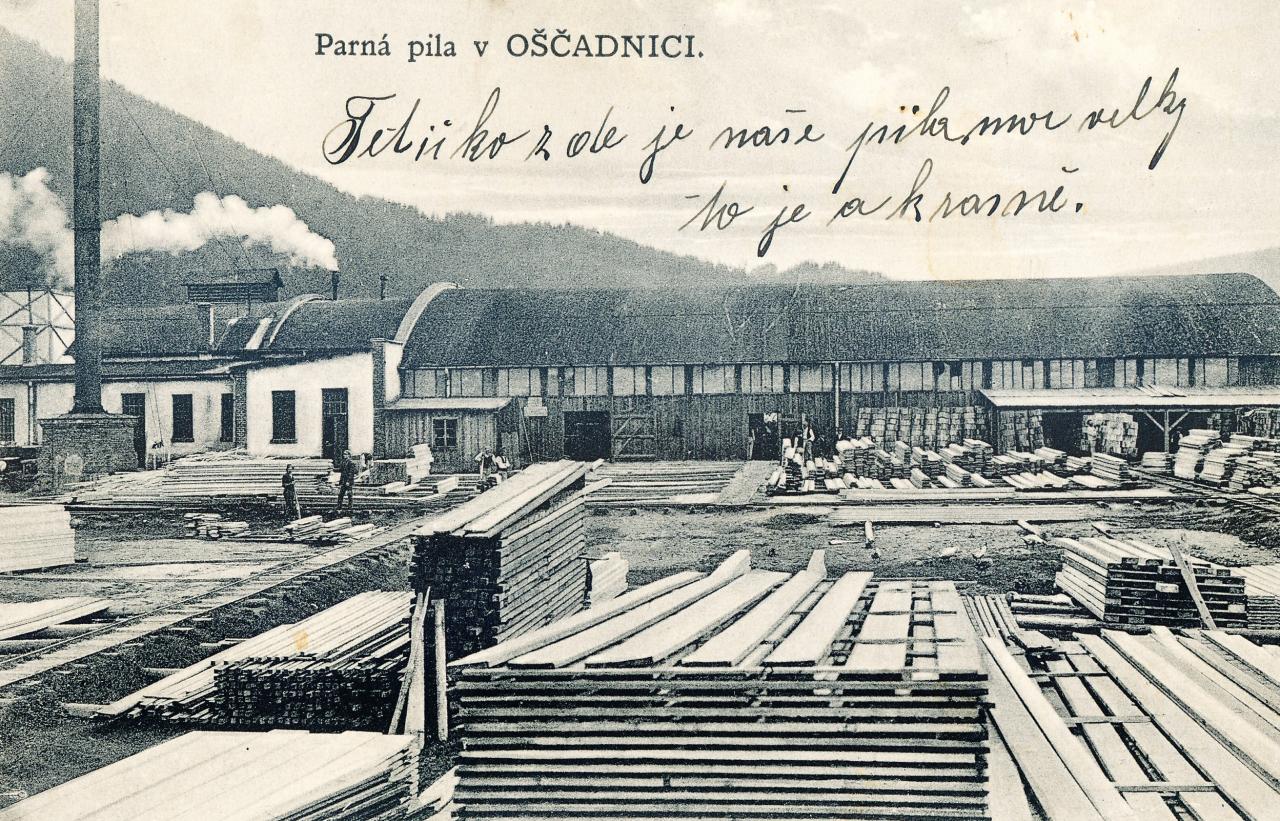 Parná pila v OŠČADNICI.
Tetičko zde je naše pila, moc velky
to je a krasné.